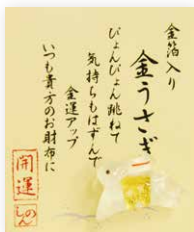 金箔入り
金うさぎ
ぴょんぴょん跳ねて
気持ちもはずんで
金運アップ
いつも貴方のお財布に
開運